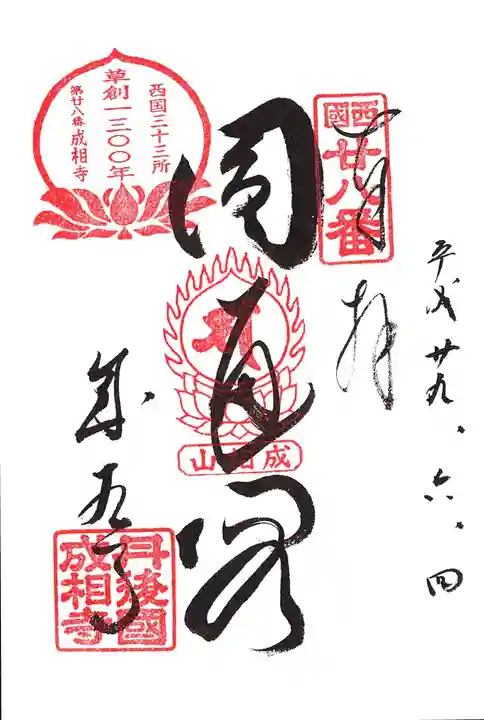 平成廿九、六、四
奉拝
西國
廿八番
圓通閣
西国三十三所
草創一三〇〇年
第廿八番 成相寺
成相山
丹後國
成相寺